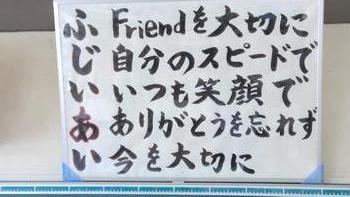 ふ Friendを大切に
じ 自分のスピードで
い いつも笑顔で
あ ありがとうを忘れず
い 今を大切に